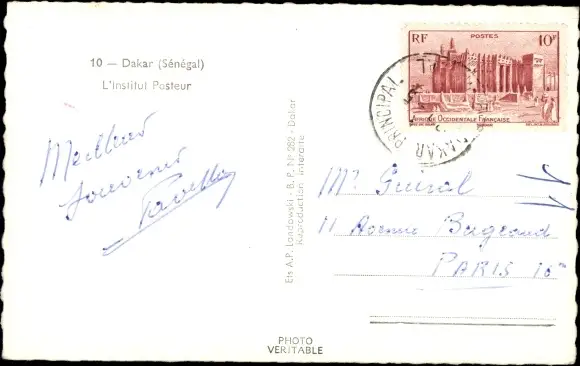 10 — Dakar (Sénégal)
L'Institut Pasteur
Meilleurs
souvenirs
Ets A.P. Landowski - B. P. Nº 282 - Dakar
Reproduction interdite
PHOTO
VERITABLE
RF
POSTES
10F
AFRIQUE OCCIDENTALE FRANÇAISE
DAKAR PRINCIPAL
Mr Guiral
11 Avenue Bugeaud
PARIS 16e